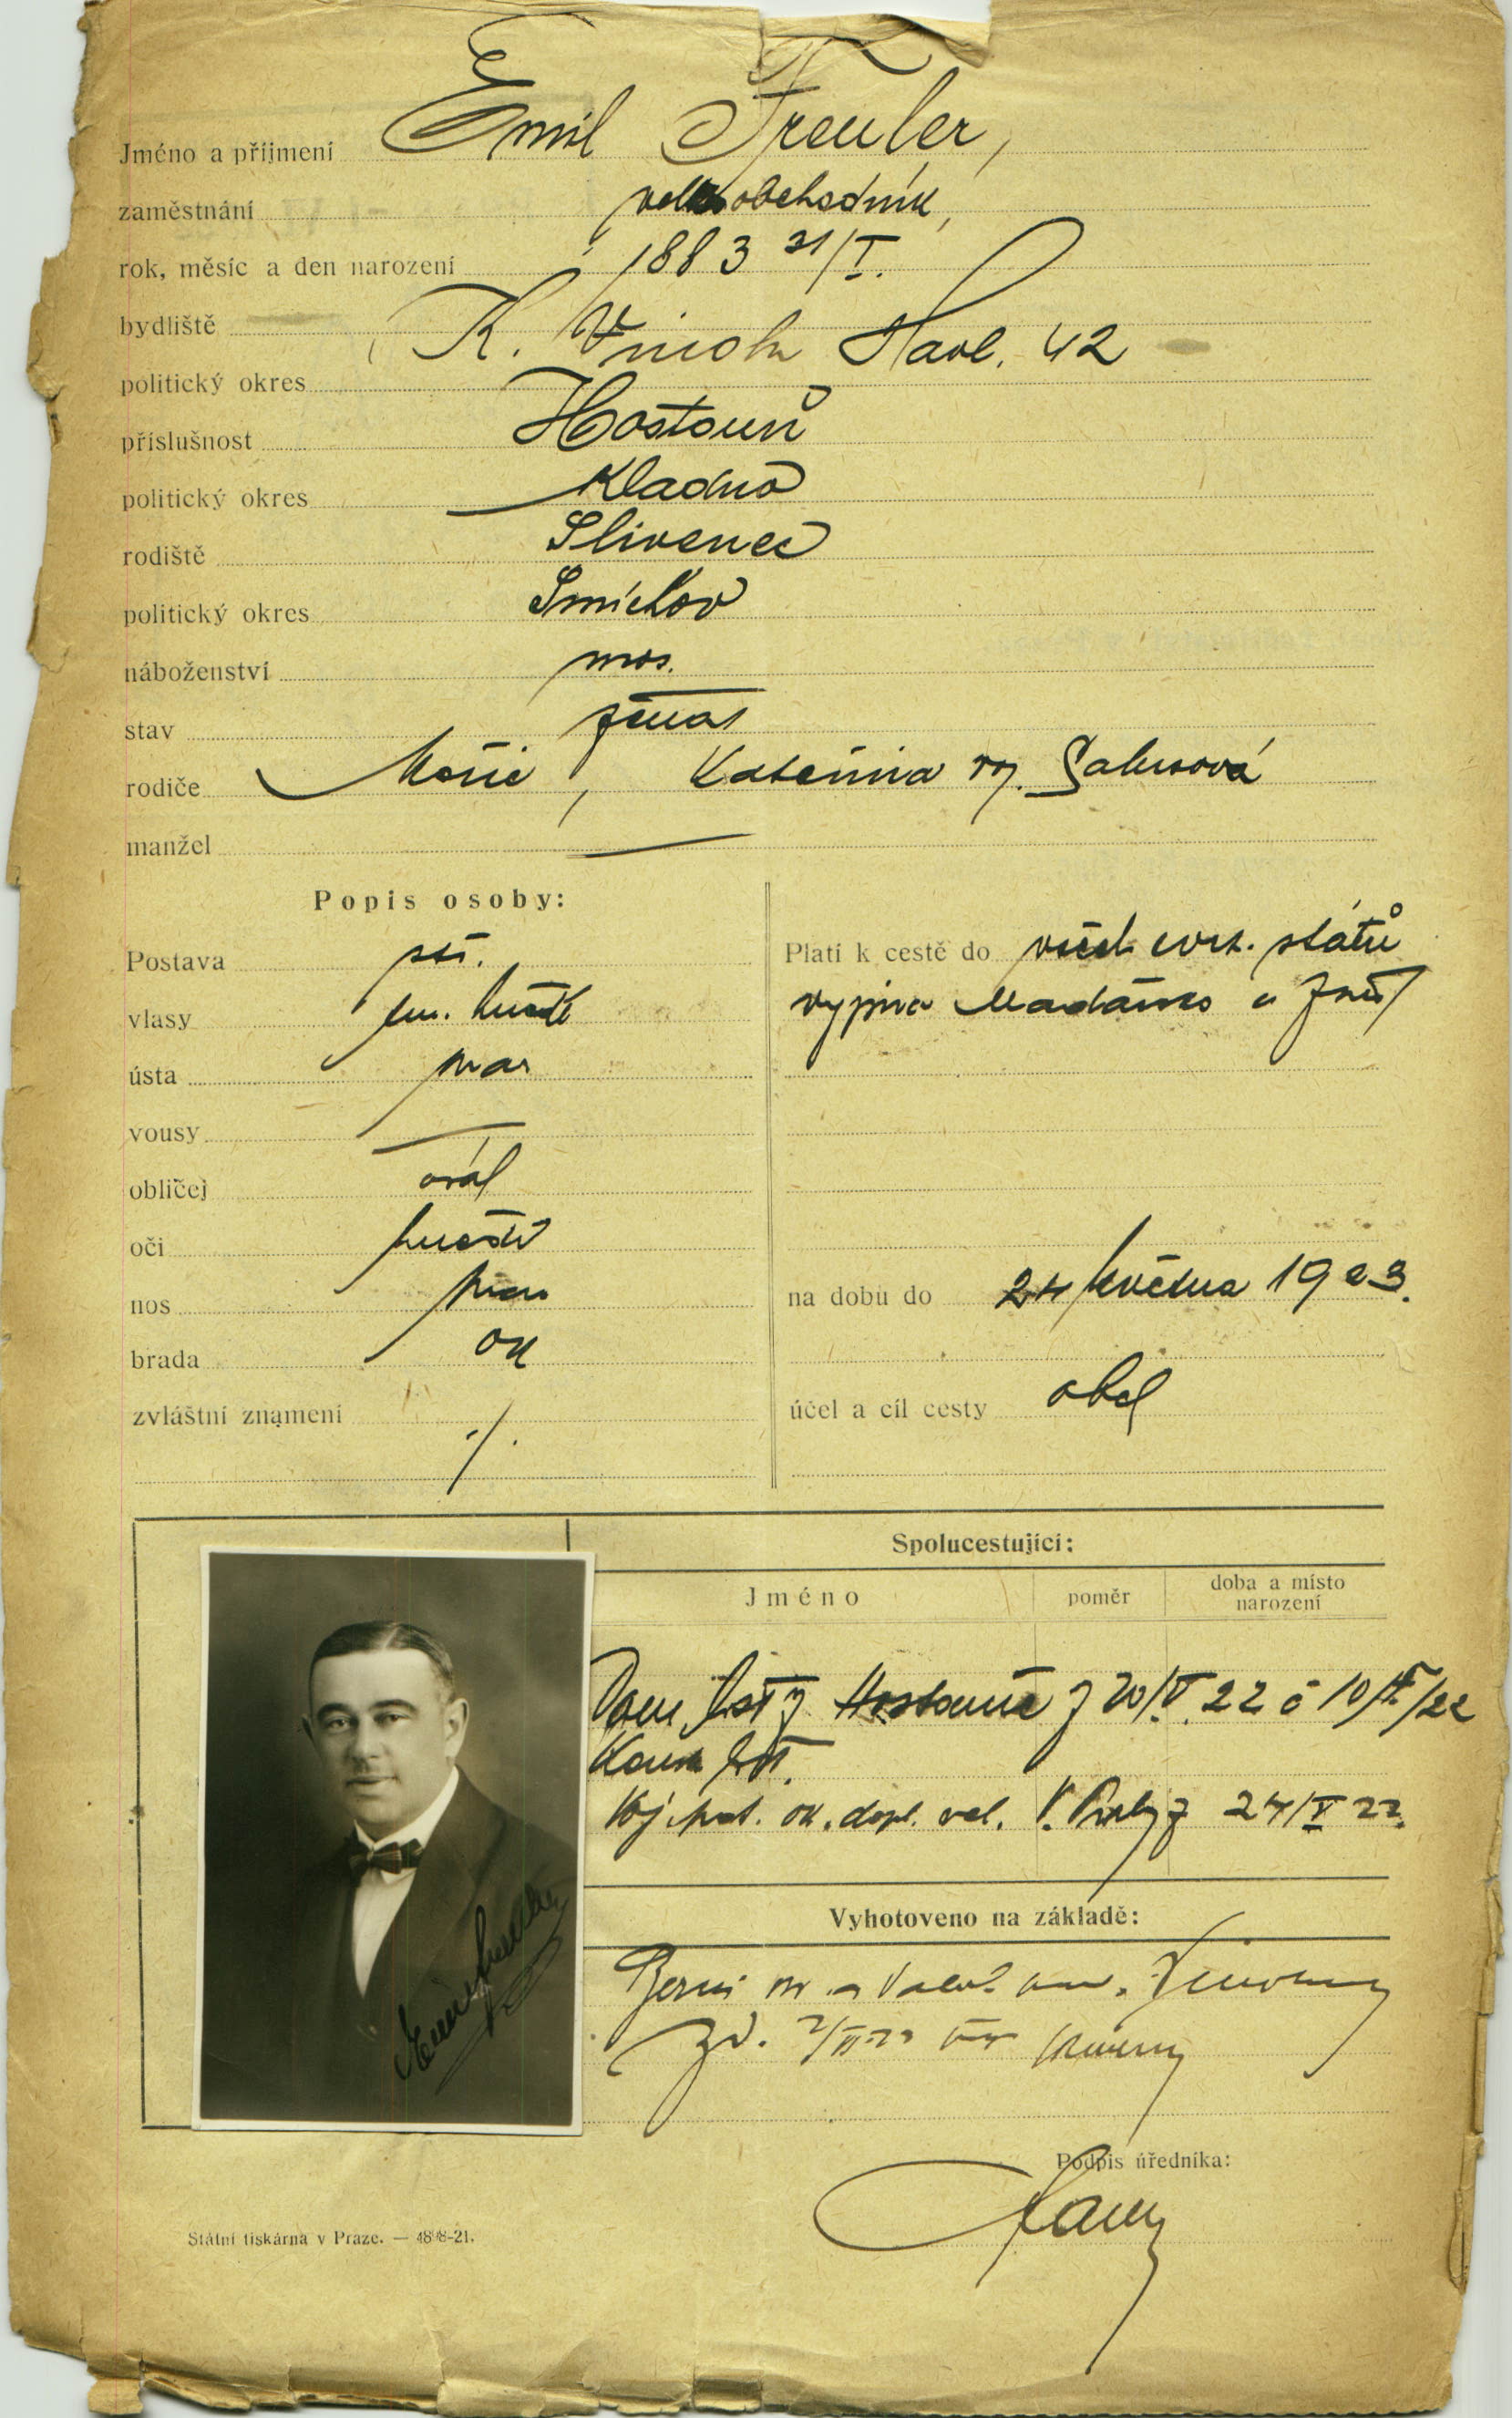 Jméno a příjmení Emil Freuler,
zaměstnání velkoobchodník,
rok, měsíc a den narození 1883 21/I.
bydliště K. Vinohr Havl. 42
politický okres
příslušnost Hostouň
politický okres Kladno
rodiště Slivenec
politický okres Smíchov
náboženství mos.
stav ženat
rodiče Mořic, Kateřina roz.
manžel
Popis osoby:
Postava stř.
vlasy tm. hnědé
ústa prav
vousy
obličej ovál
oči hnědé
nos prav
brada ok
zvláštní znamení ./.
Platí k cestě do všech evr. států
vyjma Maďarska a
na dobu do 24 května 1923.
účel a cíl cesty obch
Spolucestující:
Jméno poměr doba a místo narození
Dom. list z Hostouně z 20/V. 22 č 10/ /22
Voj. okr. dopl. vel. V. Prahy z 24/V 22.
Vyhotoveno na základě:
Podpis úředníka:
Státní tiskárna v Praze. — 4848-21.